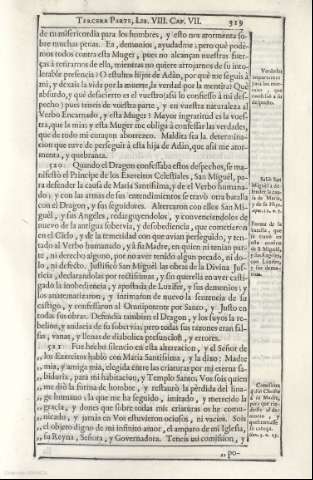 TERCERA PARTE, LIB. VIII. CAP. VII. 319
de misericordia para los hombres, y esto nos atormenta so-
bre muchas penas. Ea, demonios, ayudadme; pero què podè-
mos todos contra esta Muger, pues no alcançan nuestras fuer-
ças à retirarnos de ella, mientras no quiere arrojarnos de su into-
lerable presencia? O estultos hijos de Adàn, por què me seguis à
mi, y dexais la vida por la muerte, la verdad por la mentira? Què
absurdo, y què desacierto es el vuestro (assi lo confiesso à mi des-
pecho) pues teneis de vuestra parte, y en vuestra naturaleza al
Verbo Encarnado, y esta Muger? Mayor ingratitud es la vues-
tra, que la mia: y esta Muger me obliga à confessar las verdades,
que de todo mi coraçon aborrezco. Maldita sea la determina-
cion que tuve de perseguir à esta hija de Adàn, que assi me ator-
menta, y quebranta.
520. Quando el Dragon confessaba estos despechos, se ma-
nifestò el Principe de los Exercitos Celestiales, San Miguèl, pa-
ra defender la causa de Maria Santissima, y de el Verbo humana-
do; y con las armas de sus entendimientos se travò otra batalla
con el Dragon, y sus seguidores. Altercaron con ellos San Mi-
guèl, y sus Angeles, redarguyendolos, y convenciendolos de
nuevo de la antigua sobervia, y desobediencia, que cometieron
en el Cielo, y de la temeridad con que avian perseguido, y ten-
tado al Verbo humanado, y à su Madre, en quien ni tenian par-
te, ni derecho alguno, por no aver tenido algun pecado, ni do-
lo, ni defecto. Justificò San Miguèl las obras de la Divina Jus-
ticia, declarandolas por rectissimas, y sin querella en aver casti-
gado la inobediencia, y apostasia de Luzifer, y sus demonios: y
los anatematizaron, y intimaron de nuevo la sentencia de su
castigo, y confessaron al Omnipotente por Santo, y Justo en
todas sus obras. Defendia tambien el Dragon, y los suyos la re-
beldia, y audacia de su sobervia: pero todas sus razones eran fal-
sas, vanas, y llenas de diabolica presuncion, y errores.
521. Fue hecho silencio en esta altercacion, y el Señor de
los Exercitos hablò con Maria Santissima, y la dixo: Madre
mia, y amiga mia, elegida entre las criaturas por mi eterna sa-
biduria, para mi habitacion, y Templo Santo; Vos sois quien
me diò la forma de hombre, y restaurò la pèrdida del lina-
ge humano: la que me ha seguido, imitado, y merecido la
gracia, y dones que sobre todas mis criaturas os he comu-
nicado, y jamàs en Vos estuvieron ociosos, ni vacios. Sois
el objeto digno de mi infinito amor, el amparo de mi Iglesia,
su Reyna, Señora, y Governadora. Teneis mi comission, y
po-